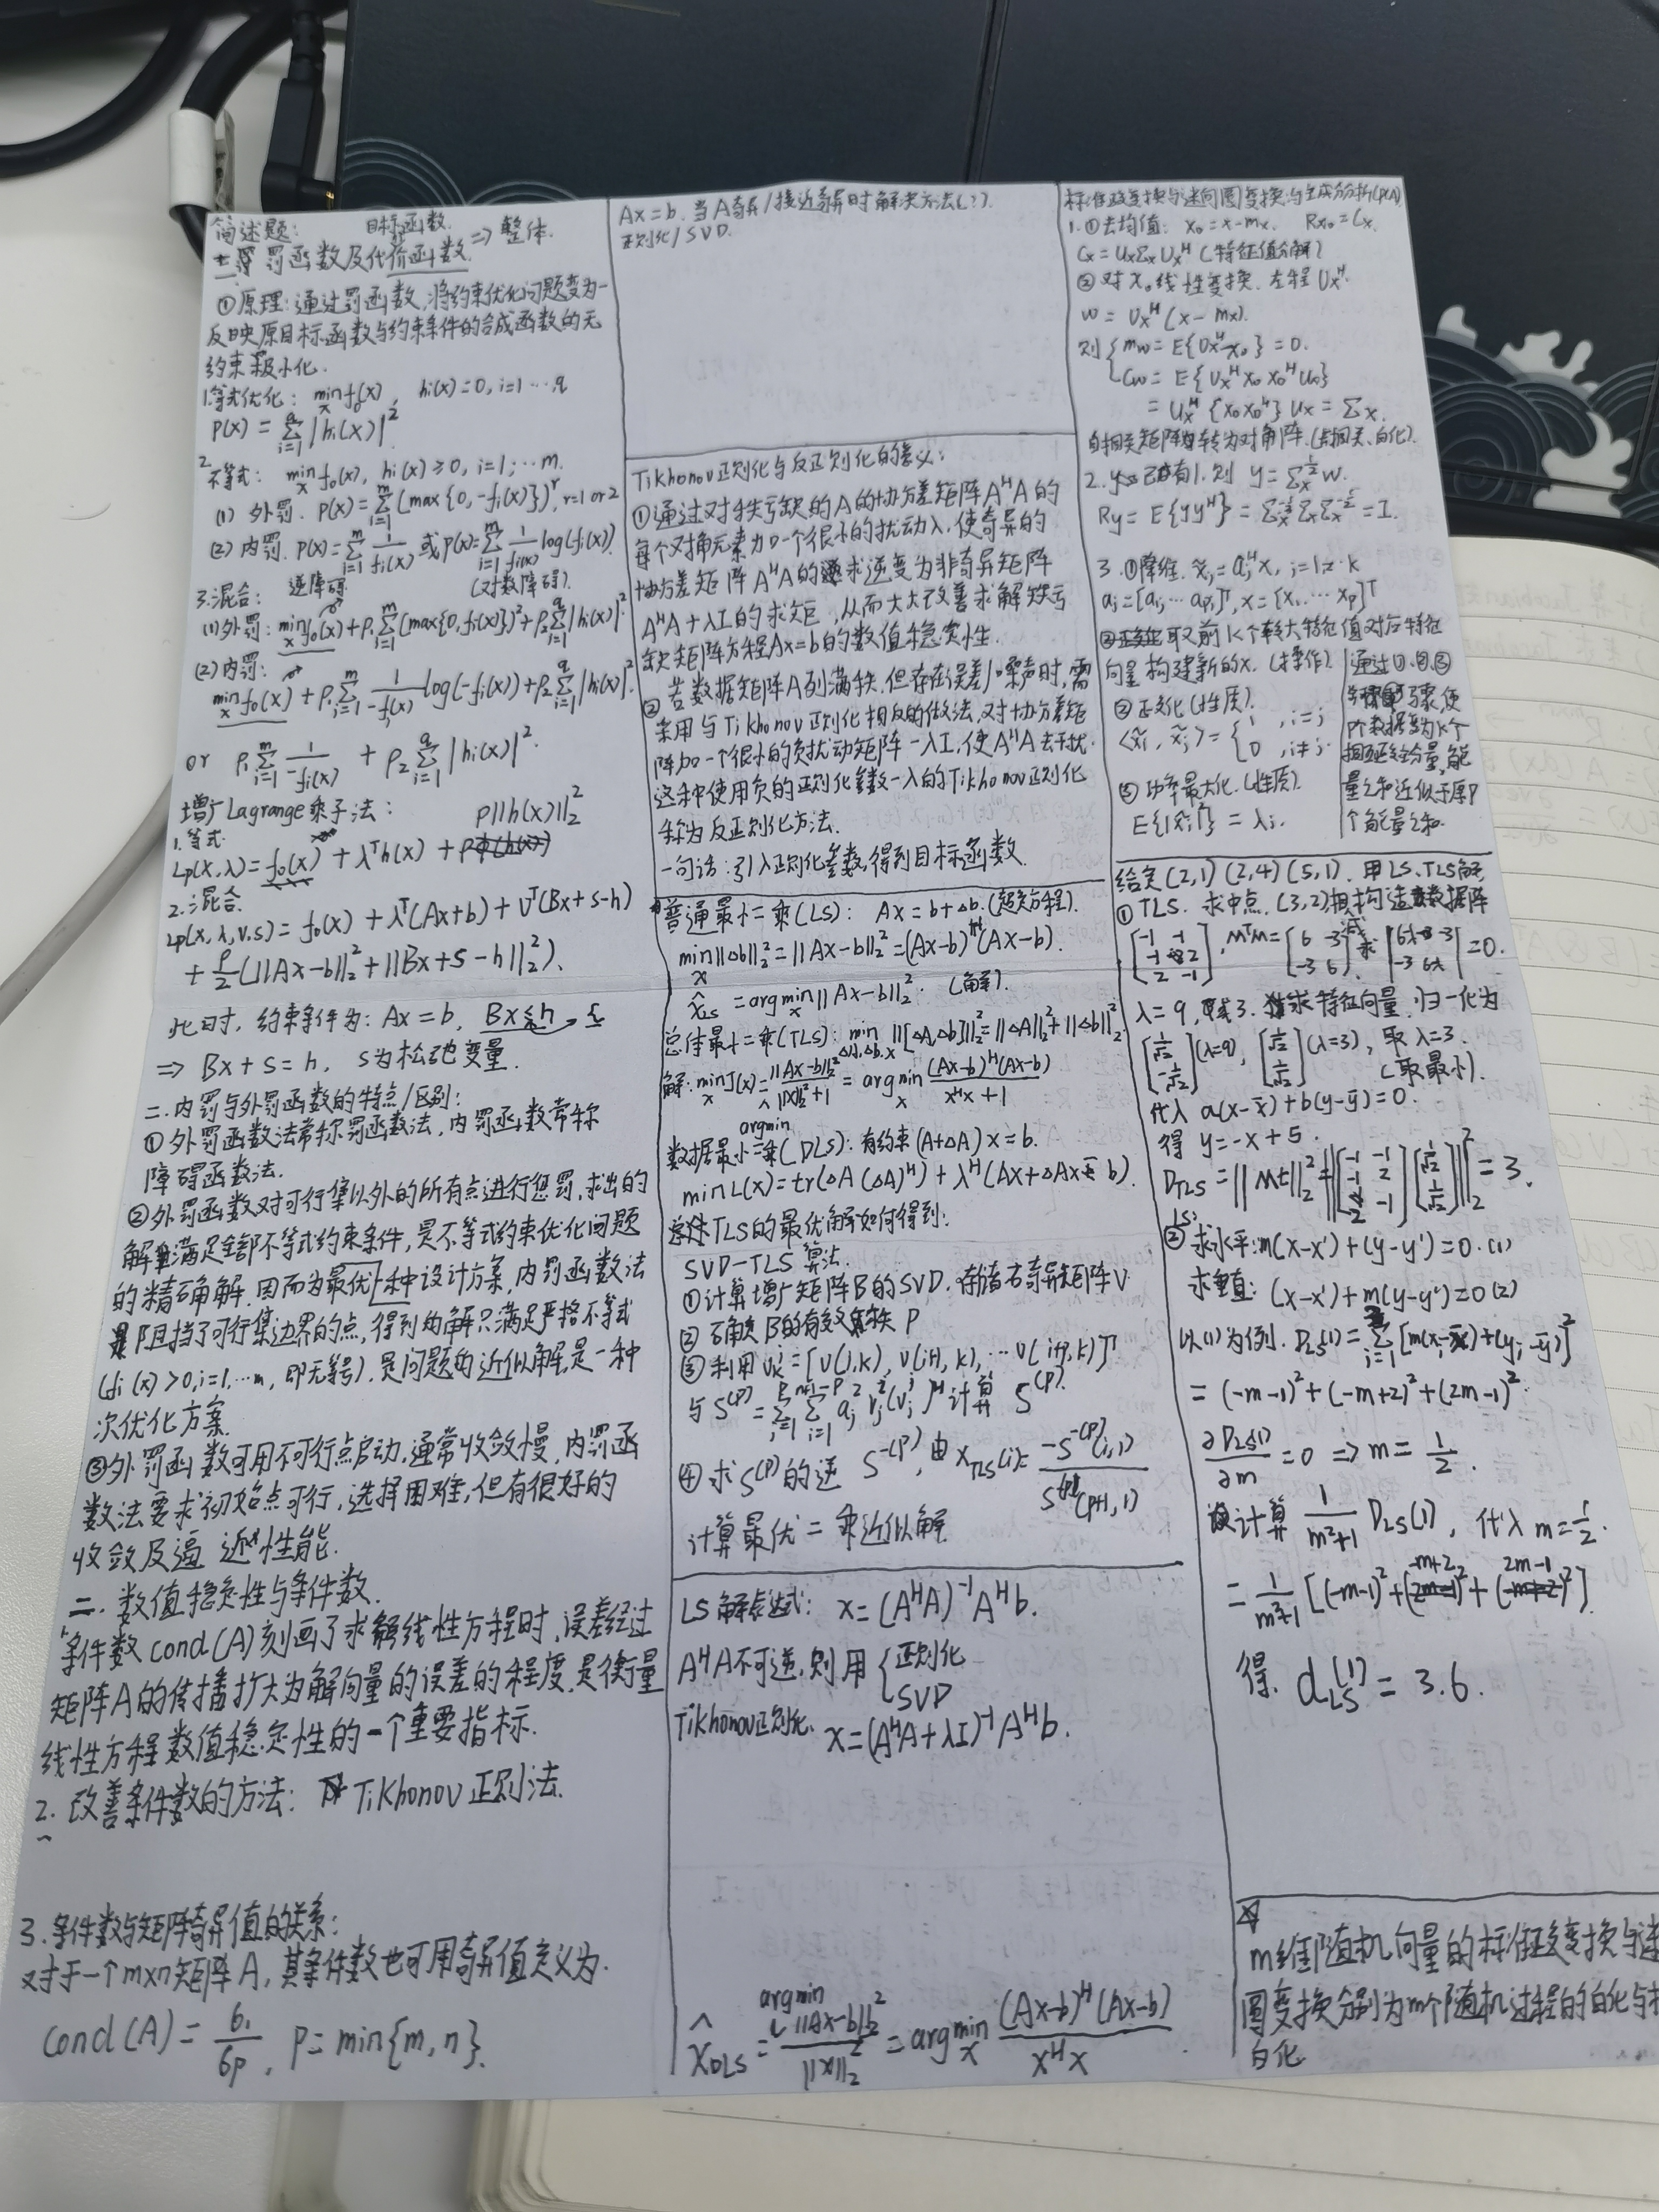 简述题： 目标函数
一、罚函数及代价函数 ⇒ 整体.
①原理：通过罚函数,将约束优化问题变为一
反映原目标函数与约束条件的合成函数的无
约束极小化.
1.等式优化： min f₀(x), hi(x)=0, i=1…q
x
P(x) = Σ_{i=1}^{q} |hi(x)|²
2.不等式： min f₀(x), hi(x)≥0, i=1,…m.
x
(1) 外罚. P(x)=Σ_{i=1}^{m} (max{0, -fi(x)})^r, r=1 or 2
(2) 内罚. P(x)=Σ_{i=1}^{m} 1/fi(x) 或 P(x)=Σ_{i=1}^{m} 1/fi(x) log(fi(x))
逆障碍 (对数障碍).
3.混合：
(1)外罚： min f₀(x)+ρ₁Σ_{i=1}^{m}(max{0,fi(x)})²+ρ₂Σ_{i=1}^{q}|hi(x)|².
(2)内罚：
min f₀(x) + ρ₁Σ_{i=1}^{m} 1/-fi(x) log(-fi(x))+ρ₂Σ_{i=1}^{q}|hi(x)|².
x
or ρ₁Σ_{i=1}^{m} 1/-fi(x) + ρ₂Σ_{i=1}^{q}|hi(x)|².
增广Lagrange乘子法： ρ||h(x)||₂²
1.等式
Lρ(x,λ)= f₀(x) + λᵀh(x) +
2.混合
Lρ(x,λ,v,s) = f₀(x) + λᵀ(Ax+b) + vᵀ(Bx+s-h)
+ ρ/2 (||Ax-b||₂²+||Bx+s-h||₂²).
此时，约束条件为：Ax=b, Bx≤h
⇒ Bx+s=h, s为松弛变量.
二.内罚与外罚函数的特点/区别：
①外罚函数法常称罚函数法，内罚函数常称
障碍函数法.
②外罚函数对可行集以外的所有点进行惩罚,求出的
解满足全部不等式约束条件，是不等式约束优化问题
的精确解.因而为最优一种设计方案,内罚函数法
是阻挡了可行集边界的点,得到的解只满足严格不等式
(fi(x)>0,i=1,…m, 即无等号).是问题的近似解,是一种
次优化方案.
③外罚函数可用不可行点启动,通常收敛慢,内罚函
数法要求初始点可行,选择困难,但有很好的
收敛及逼近性能.
二.数值稳定性与条件数.
条件数cond(A)刻画了求解线性方程时,误差经过
矩阵A的传播扩大为解向量的误差的程度.是衡量
线性方程数值稳定性的一个重要指标.
2. 改善条件数的方法： Tikhonov正则法.
3.条件数与矩阵奇异值的关系：
对于一个m×n矩阵A，其条件数也可用奇异值定义为.
cond(A) = σ₁/σp, p=min{m,n}.
Ax=b.当A奇异/接近奇异时解决方法(?).
正则化/SVD.
Tikhonov正则化与反正则化的意义：
①通过对秩亏缺的A的协方差矩阵AᴴA的
每个对角元素加一个很小的扰动λ.使奇异的
协方差矩阵AᴴA的求逆变为非奇异矩阵
AᴴA+λI的求逆，从而大大改善求解秩亏
缺矩阵方程Ax=b的数值稳定性.
②若数据矩阵A列满秩.但存在误差/噪声时,需
采用与Tikhonov正则化相反的做法,对协方差矩
阵加一个很小的负扰动矩阵-λI.使AᴴA去干扰.
这种使用负的正则化参数-λ的Tikhonov正则化
称为反正则化方法.
一句话：引入正则化参数,得到目标函数.
普通最小二乘(LS)： Ax=b+Δb.(超定方程).
min||Δb||₂²=||Ax-b||₂²=(Ax-b)ᴴ(Ax-b).
x
x̂_LS = argmin||Ax-b||₂². (解).
x
总体最小二乘(TLS)： min ||[ΔA,Δb]||₂²=||ΔA||₂²+||Δb||₂²
ΔA,Δb,x
解：min J(x)= ||Ax-b||₂²/||x||₂²+1 = argmin (Ax-b)ᴴ(Ax-b)/xᴴx+1
x x
argmin
数据最小二乘(DLS)：有约束(A+ΔA)x=b.
min L(x)=tr(ΔA(ΔA)ᴴ)+λᴴ(Ax+ΔAx-b).
TLS的最优解如何得到：
SVD-TLS算法.
①计算增广矩阵B的SVD.存储右奇异矩阵V
②确定B的有效秩P
③利用 v_k^i=[v(i,k), v(i+1,k),…v(i+P,k)]ᵀ
与 S^(P)=Σ_{j=1}^{P} Σ_{i=1}^{n+1-P} σj² v_j^i(v_j^i)ᴴ 计算 S^(P).
④求S^(P)的逆 S^-(P),由 x_TLS(i)= -S^-(P)(i,1)/S^-(P)(P+1,1)
计算最优二乘近似解
LS解表达式： x=(AᴴA)⁻¹Aᴴb.
AᴴA不可逆.则用{正则化
SVD
Tikhonov正则化. x=(AᴴA+λI)⁻¹Aᴴb.
argmin
x̂_DLS= ||Ax-b||₂²/||x||₂² = argmin (Ax-b)ᴴ(Ax-b)/xᴴx
x
标准正交变换与迷向圆变换与主成分分析(PCA)
1.①去均值： x₀=x-mx. Rx₀=Cx.
Cx=UxΣxUxᴴ (特征值分解)
②对x₀线性变换.左乘Uxᴴ.
w=Uxᴴ(x-mx).
则{mw=E{Uxᴴx₀}=0.
Cw=E{Uxᴴx₀x₀ᴴUx}
=Uxᴴ{x₀x₀ᴴ}Ux=Σx.
自相关矩阵转为对角阵.(去相关、白化).
2. 已有1.则 y=Σx^-½ w.
Ry=E{yyᴴ}=Σx^-½ΣxΣx^-½=I.
3.①降维. x̃j=ajᴴx, j=1…k
aj=[a₁,…ap]ᵀ, x=[x₁,…xp]ᵀ
取前K个较大特征值对应特征
向量构建新的x.(操作).
②正交化(性质).
⟨x̃i,x̃j⟩={1, i=j
0, i≠j.
③功率最大化.(性质).
E{|x̃i|²}=λi.
通过①②③
步骤,使
P个数据变为K个
相互正交分量,能
量之和近似于原P
个能量之和.
给定(2,1)(2,4)(5,1).用LS、TLS解
①TLS.求中点.(3,2)相减构造数据阵
[-1 -1; -1 2; 2 -1], MᵀM=[6 -3; -3 6]. 求|6-λ -3; -3 6-λ|=0.
λ=9,或3.求特征向量.归一化为
[1/√2; -1/√2](λ=9), [1/√2; 1/√2](λ=3), 取λ=3.
(取最小).
代入 a(x-x̄)+b(y-ȳ)=0.
得 y=-x+5.
D_TLS=||Mt||₂²=||[-1 -1; -1 2; 2 -1][1/√2; 1/√2]||₂²=3.
LS:
②求水平:m(x-x')+(y-y')=0.(1)
求垂直: (x-x')+m(y-y')=0(2)
以(1)为例. D_LS(1)=Σ_{i=1}^{3}[m(xi-x̄)+(yi-ȳ)]²
=(-m-1)²+(-m+2)²+(2m-1)².
∂D_LS(1)/∂m=0 ⇒ m=1/2.
计算 1/m²+1 D_LS(1), 代入m=1/2.
=1/m²+1 [(-m-1)²+(-m+2)²+(2m-1)²]
得. d_LS^(1)=3.6.
☆
m维随机向量的标准正交变换与迷
圆变换分别为m个随机过程的白化与
白化